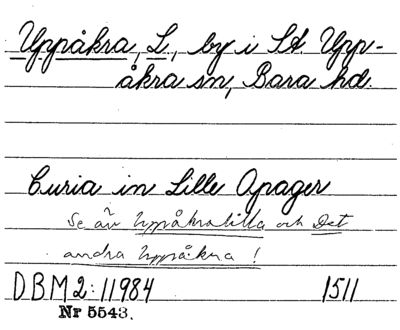 Uppåkra, L., by i St. Upp-
åkra sn, Bara hd.
Curia in Lille Opager
Se äv Uppåkralilla och Det
andra Uppåkra!
DBM 2:11984 1511
Nr 5543.